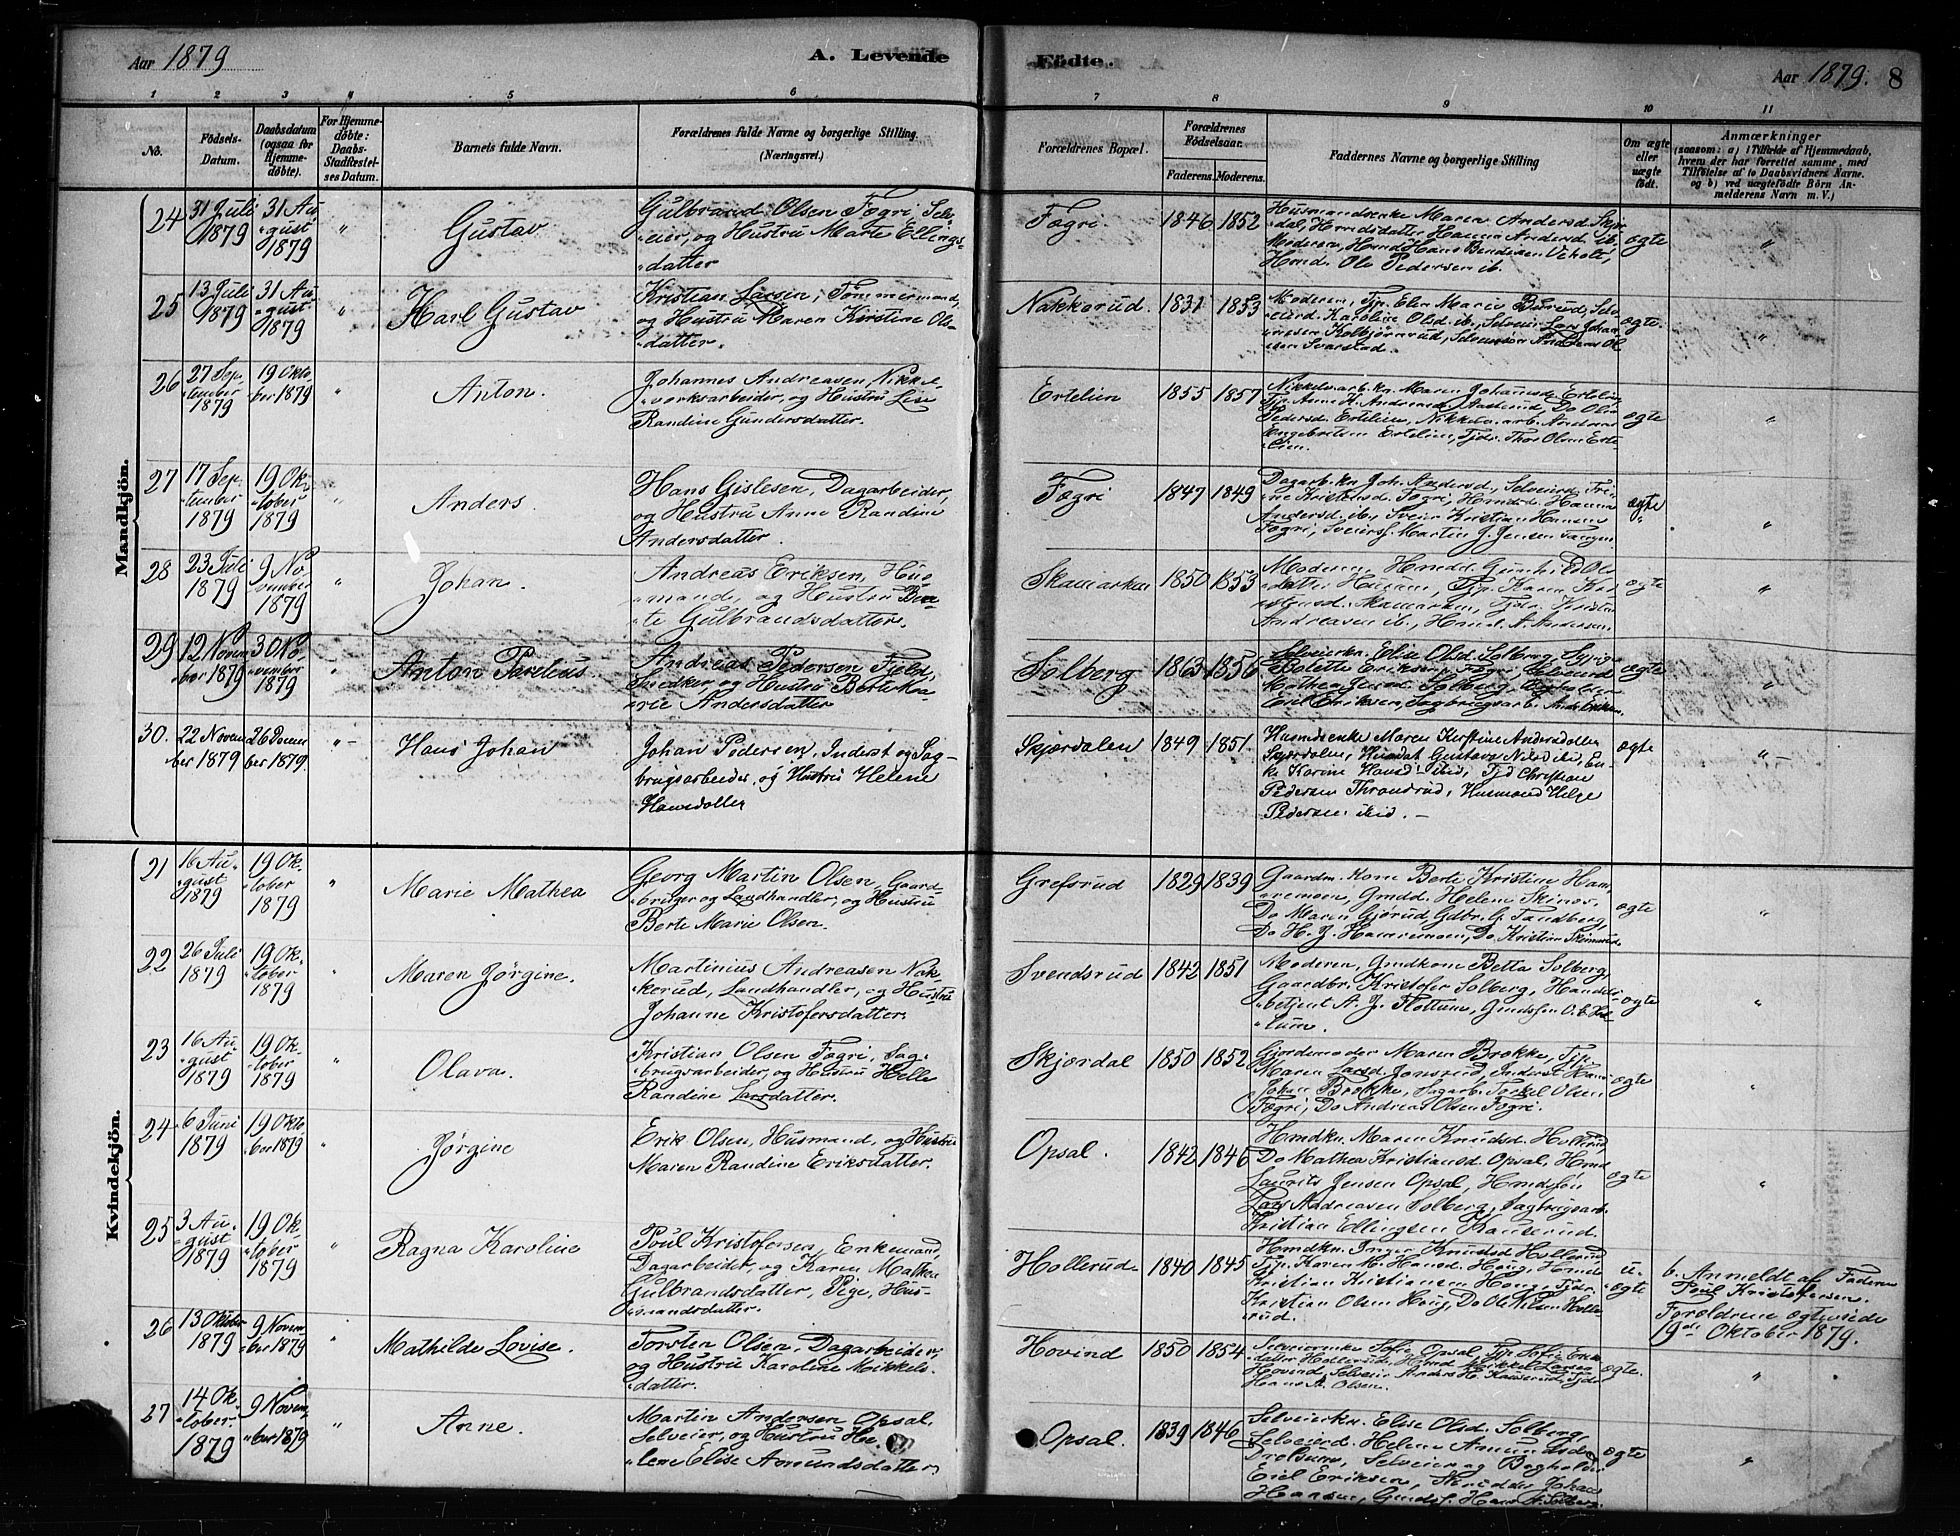 Aar 1879
A. Levende
Födte.
Aar 1879. 8
1 2 3 4 5 6 7 8 9 10 11
No.
Födsels-
Datum.
Daabsdatum
(ogsaa for
Hjemme-
døbte).
For Hjemme-
døbte:
Daabs-
Stadfæstel-
ses Datum.
Barnets fulde Navn.
Forældrenes fulde Navne og borgerlige Stilling.
(Næringsvei.)
Forældrenes Bopæl.
Forældrenes
Födselsaar.
Faderens. Moderens.
Faddernes Navne og borgerlige Stilling
Om ægte
eller
uægte
født.
Anmærkninger
(saasom: a) i Tilfælde af Hjemmedaab,
hvem der har forrettet samme, med
Tilføielse af to Daabsvidners Navne.
og b) ved uægtefødte Börn An-
melderens Navn m. V.)
Mandkjön.
24
31 Juli
1879
31 Au-
gust
1879
"
Gustav
Gulbrand Olsen Fægri, Sel-
eier, og Hustru Marte Ellings-
datter
Fægri.
1846
1852
Husmandsenke Maren Andersd. Skjær-
dal, Hmdsdatter Hanna Andersd. ib.
Moderen, Hmd Hans Bendixen Veholt,
Hmd. Ole Pedersen ib.
ægte
"
25
13 Juli
1879
31 Au-
gust
1879
"
Karl Gustav
Kristian Larsen, Tømmermand,
og Hustru Maren Kirstine Ols-
datter.
Nakkerud.
1831
1853
Moderen, Tjp. Elen Marie
Karoline Olsd. ib., Selveier Lars Johan-
nesen Kolbjørnrud,
Svarstad.
ægte.
"
26
27 Sep-
tember
1879
19 Okto-
ber 1879
"
Anton.
Johannes Andreasen, Nikkel-
verksarbeider, og Hustru Lise
Randine Gundersdatter.
Ertelien
1855
1857
Nikkelv.arb.kn. Maren Johannsd. Ertelien,
Tjp. Anne K. Andreasd. Aaslund, Do Olea
Pedersd. Ertelien, Nikkelv. arb. Andreas
Engebretsen Ertelien, Tjdr. Thor Olsen Erte-
lien.
ægte
"
27
17 Sep-
tember
1879
19 Ok-
tober
1879
"
Anders.
Hans Gislesen, Dagarbeider,
og Hustru Anne Randine
Andersdatter.
Fægri
1847
1849
Dagarb.kn Joh. Andersd., Selveierd. Tri-
ne Kristensd. Fægri, Hmdsd. Hanna
Andersd. ib., Sveier Kristian Hansen
Fægri, Sveiers. Martin J. Jensen Tangen
ægte
"
28
23 Juli
1879
9 No-
vember
1879
"
Johan.
Andreas Eriksen, Hus-
mand, og Hustru Ben-
te Gulbrandsdatter.
Skamarken
1850
1853
Moderen, Hmdd. Gunhild Ols-
datter Hurum, Tjp. Karen Kri-
stensd. Skamarken, Tjdr. Kristen
Andreasen ib., Hmd. A. Andersen.
ægte
"
29
12 Novem-
ber 1879
30 No-
vember
1879
"
Anton Parelius
Andreas Pedersen Fjeld,
Snedker og Hustru Berte Ma-
rie Andersdatter
Solberg
1863
1856
Selveierkn. Elise Olsd. Solberg, Sypige
Bolette Eriksen Fægri, Selveierd
Mathea Jensd. Solberg, Bogholder
Eriel Eriksen, Sagbrugsarb. Andr. Eriksen.
ægte
"
30.
22 Novem-
ber 1879
26 Decem-
ber 1879.
"
Hans Johan
Johan Pedersen, Inderst og Sag-
brugsarbeider, og Hustru Helene
Hansdatter
Skjærdalen
1849
1851.
Husmdsenke Maren Kirstine Andersdatter
Skjærdalen, Husmdat Gustava Nilsd ibid, En-
ke Karine Hansd. ibid, Tjd Christian
Pedersen Thrandrud, Husmand Helge
Pedersen ibid.
ægte
"
Kvindekjön.
21
16 Au-
gust
1879
19 Ok-
tober
1879
"
Marie Mathea
Georg Martin Olsen, Gaard-
bruger og Landhandler, og Hustru
Berte Marie Olsen.
Grefsrud
1829
1839
Gaardm. Kone Berte Kristine Ham-
remoen, Gmdd. Helene Skines,
Do Maren Gjørud, Gdbr. G. Tandberg,
Do H. J. Hamremoen, Do Kristian Skinrud.
ægte
"
22
26 Juli
1879
19 Ok-
tober
1879
"
Maren Jørgine.
Martinius Andreasen Nak-
kerud, Landhandler, og Hustru
Johanne Kristofersdatter.
Svendsrud
1842
1851
Moderen, Gmdkone Betta Solberg,
Gaardbr. Kristofer Solberg, Handels-
betjent A. J. Flottum,
tum.
ægte
"
23
16 Au-
gust
1879
19 Ok-
tober
1879
"
Olava.
Kristian Olsen Fægri, Sag-
brugsarbeider, og Hustru Helle
Randine Larsdatter.
Skjærdal
1850
1852
Gjordemoder Maren Brokke, Tjp.
Maren Larsd. Jonsrud, Inderst Hans
Johan Brokke, Sagarb. Terkel Olsen
Fægri, Do Andreas Olsen Fægri.
ægte
"
24
6 Juni
1879
19 Okto-
ber 1879
"
Jørgine
Erik Olsen, Husmand, og Hustru
Maren Randine Eriksdatter.
Opsal.
1842
1846
Hmdkn. Maren Knudsd. Hollerud,
Do Mathea Kristiansd. Opsal, Hmd
Laurits Jensen Opsal, Hmdsøn
Lars Andreasen Solberg, Sagbrugsarb.
Kristian Ellingsen Kauserud.
ægte
"
25
3 Au-
gust
1879
19 Ok-
tober
1879
"
Ragna Karoline
Poul Kristofersen, Enkemand,
Dagarbeider, og Karen Mathea
Gulbrandsdatter, Pige, Hus-
mandsdatter.
Hollerud
1840
1845
Hmdkn. Inger Knudsd Hollerud
Tjp. Karen H. Hansd. Houg, Hmds.
Kristian Kristiansen Houg, Tjdr.
Kristian Olsen Houg, Do Ole Nilsen Holle-
rud.
u-
ægte
b. Anmeldt af Faderen
Poul Kristofersen.
Forældrene ægteviede
19de Oktober 1879.
26
13 Oktober
1879
9 Novem-
ber 1879
"
Mathilde Lovise.
Torsten Olsen, Dagarbeider,
og Hustru Karoline Mikkels-
datter.
Hovind
1850
1854
Selveierenke Sofie Opsal, Tjp. Sofie Eriks-
datter Hollerud, Hmd Mikkel Larsen
Hovind, Selveier Anders H. Kauserud, Tjdr.
Hans A. Olsen.
ægte.
"
27
14 Ok-
tober
1879
9 Novem-
ber 1879
"
Anne.
Martin Andersen Opsal,
Selveier, og Hustru He-
lene Elise Amundsdatter
Opsal.
1839
1846
Selveierkn. Elise Olsd. Solberg,
Selveierd. Helene Amundsd.
Drolsum, Selveier og Bogholder
Eriel Eriksen, Skrædder Johan
Hansen, Gmdsf. Hans A. Solberg.
ægte
"